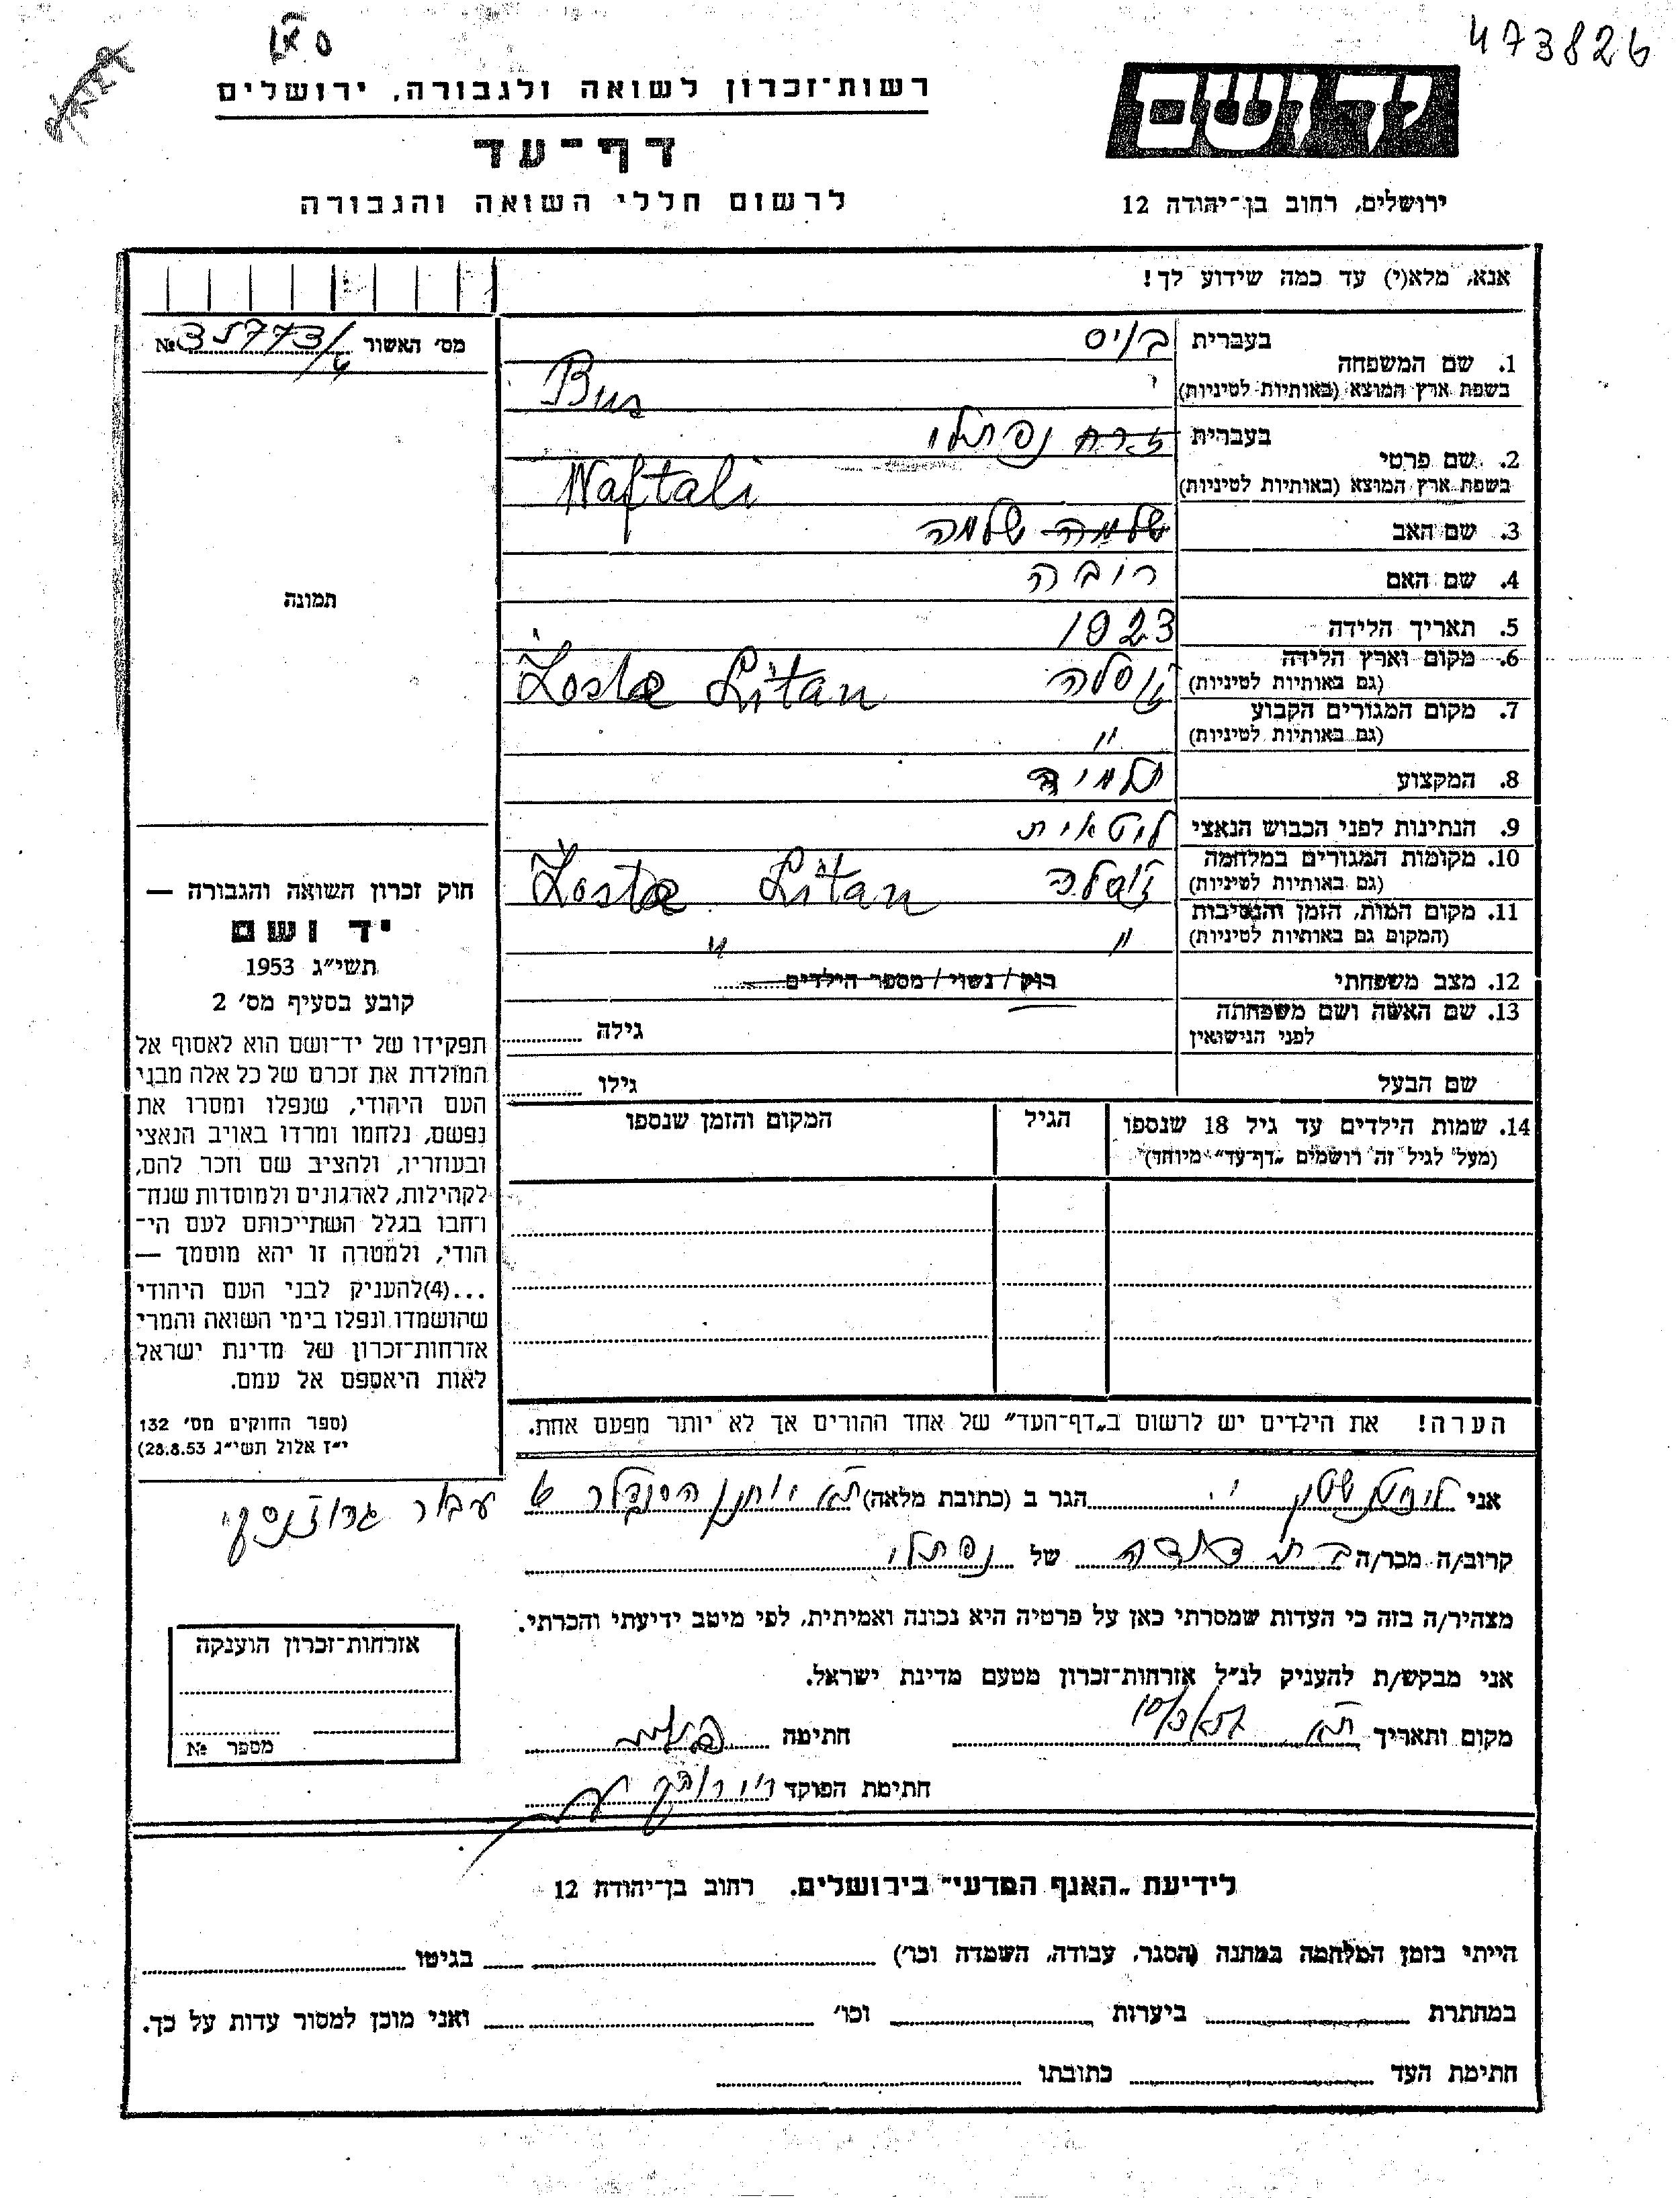 473826
רשות־זכרון לשואה ולגבורה, ירושלים
דף־עד
לרשום חללי השואה והגבורה
יד ושם
ירושלים, רחוב בן־יהודה 12
אנא, מלא(י) עד כמה שידוע לך!
מס׳ האשור №35773/4
1. שם המשפחה בעברית
בשפת ארץ המוצא (באותיות לטיניות) Bus
2. שם פרטי בעברית נפתלי
בשפת ארץ המוצא (באותיות לטיניות) Naftali
3. שם האב שלמה שלמה
4. שם האם
5. תאריך הלידה 1923
6. מקום וארץ הלידה
(גם באותיות לטיניות) Litan
7. מקום המגורים הקבוע
(גם באותיות לטיניות) "
8. המקצוע תלמיד
9. הנתינות לפני הכבוש הנאצי ליטאית
10. מקומות המגורים במלחמה
(גם באותיות לטיניות) Litan
11. מקום המות, הזמן והנסיבות
(המקום גם באותיות לטיניות) " "
12. מצב משפחתי רוק / נשוי / מספר הילדים
13. שם האשה ושם משפחתה
לפני הנישואין גילה
שם הבעל גילו
14. שמות הילדים עד גיל 18 שנספו הגיל המקום והזמן שנספו
(מעל לגיל זה רושמים „דף־עד״ מיוחד)
הערה! את הילדים יש לרשום ב„דף־העד״ של אחד ההורים אך לא יותר מפעם אחת.
תמונה
חוק זכרון השואה והגבורה —
יד ושם
תשי״ג 1953
קובע בסעיף מס׳ 2
תפקידו של יד־ושם הוא לאסוף אל
המולדת את זכרם של כל אלה מבני
העם היהודי, שנפלו ומסרו את
נפשם, נלחמו ומרדו באויב הנאצי
ובעוזריו, ולהציב שם וזכר להם,
לקהילות, לארגונים ולמוסדות שנח־
רחבו בגלל השתייכותם לעם הי־
הודי, ולמטרה זו יהא מוסמך —
...(4)להעניק לבני העם היהודי
שהושמדו ונפלו בימי השואה והמרי
אזרחות־זכרון של מדינת ישראל
לאות היאספם אל עמם.
(ספר החוקים מס׳ 132
י״ז אלול תשי״ג 28.8.53)
אני ליכטנשטין י. הגר ב (כתובת מלאה) ת״א יוחנן הסנדלר 6
קרוב/ה מכר/ה בת דודה של נפתלי
מצהיר/ה בזה כי העדות שמסרתי כאן על פרטיה היא נכונה ואמיתית, לפי מיטב ידיעתי והכרתי.
אני מבקש/ת להעניק לנ״ל אזרחות־זכרון מטעם מדינת ישראל.
מקום ותאריך ת״א חתימה
חתימת הפוקד
אזרחות־זכרון הוענקה
מספר №
לידיעת „האגף המדעי״ בירושלים. רחוב בן־יהודה 12
הייתי בזמן המלחמה במחנה (הסגר, עבודה, השמדה וכו׳) בגיטו
במחתרת ביערות וכו׳ ואני מוכן למסור עדות על כך.
חתימת העד כתובתו